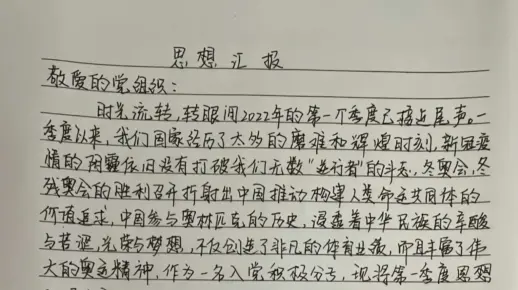 思想汇报
敬爱的党组织：
时光流转，转眼间2022年的第一个季度已接近尾声。一
季度以来，我们国家经历了太多的磨难和辉煌时刻，新冠疫
情的阴霾依旧没有打破我们无数“逆行者”的斗志，冬奥会，冬
残奥会的胜利召开折射出中国推动构建人类命运共同体的
价值追求，中国参与奥林匹克的历史，浸透着中华民族的辛酸
与苦涩，光荣与梦想，不仅创造了非凡的体育业绩，而且丰富了伟
大的奥运精神，作为一名入党积极分子，现将第一季度思想